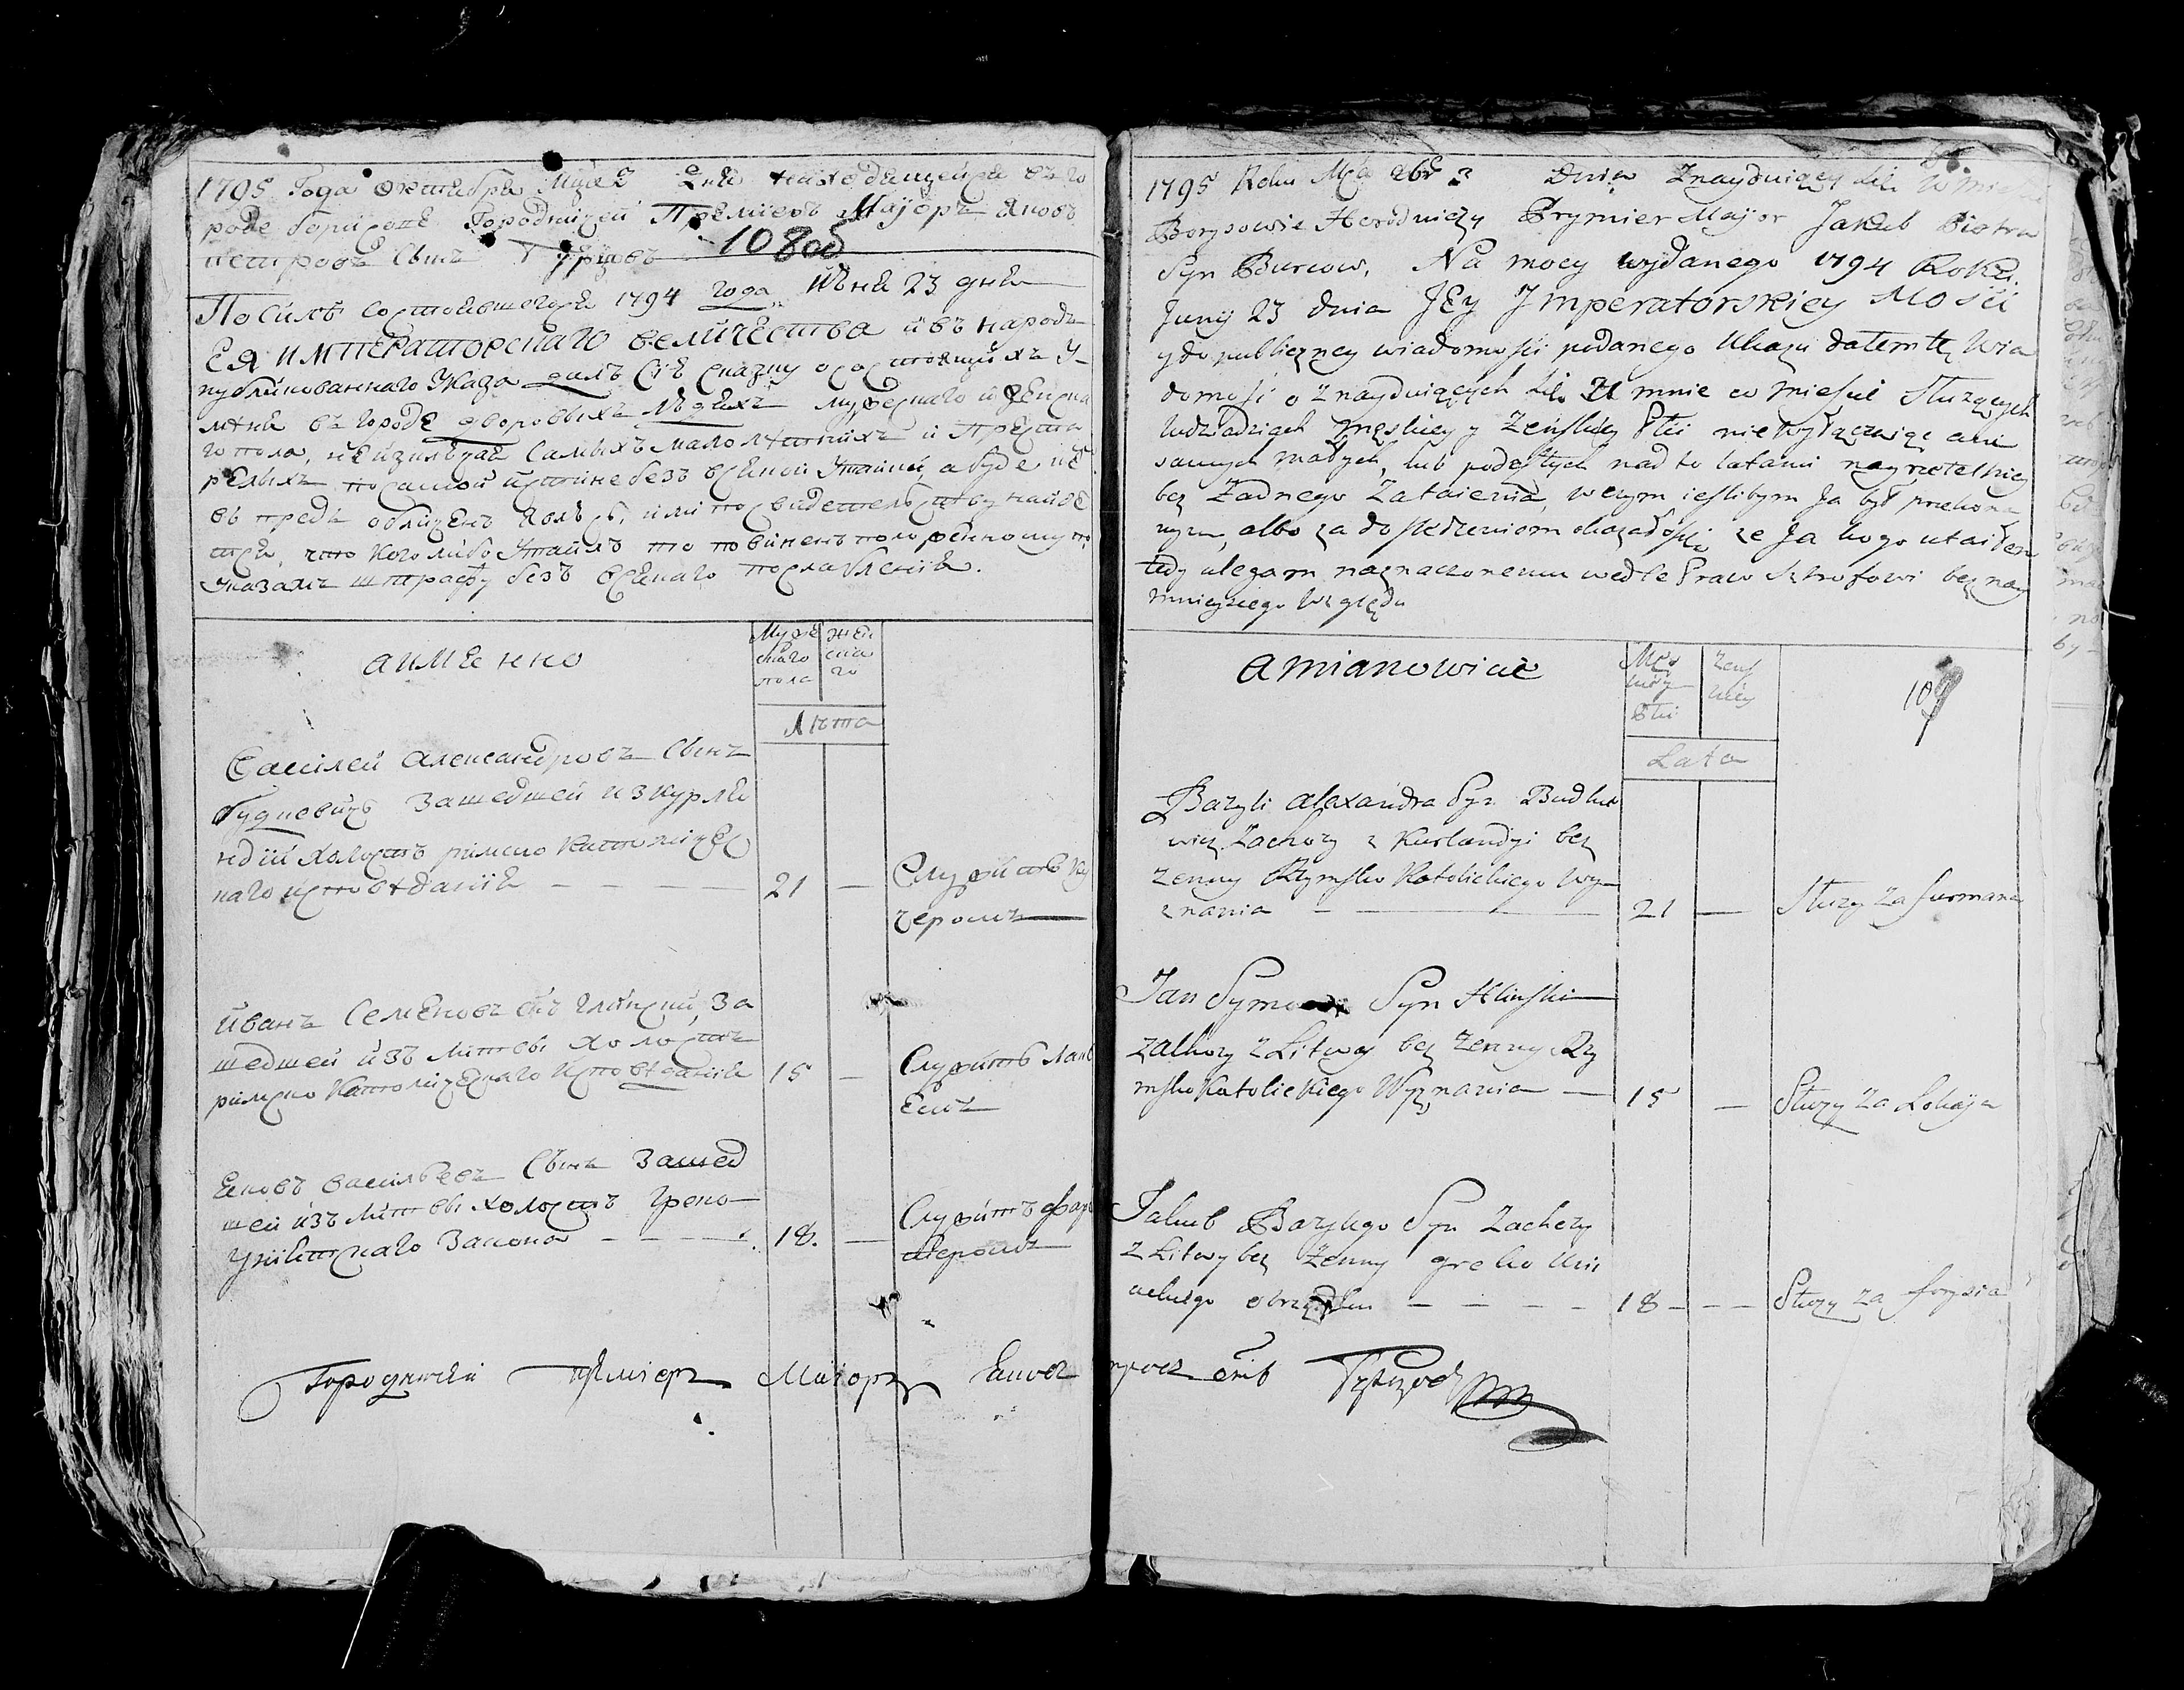 1795 Года октября Мца 2 дня находящейся въ го
роде борисове Городничей Премiеръ Маiоръ Яковъ
петровъ Сынъ
108 об
По силѣ состоявшегося 1794 года Июня 23 дня
ЕЯ ИМПЕРАТОРСКАГО ВЕЛИЧЕСТВА и въ народъ
публикованнаго Указа далъ сiю сказку о состоящихъ у
мѣня въ городе дворовыхъ людяхъ мужескаго и женска
го пола, не изключая самыхъ малолѣтнихъ и преста
релыхъ по самой истинне безъ всякой утайки, а буде
въ предъ обличенъ явлюсь, или по свидетельству найде
тся, что кого либо утаилъ то повиненъ положенному по
указамъ штрафу безъ всякаго послабленiя.
а имянно
Муже
скаго
пола
жен
ска
го
Лѣта
Василей Александровъ Сынъ
Будкевичъ Зашедшей из курля
ндiи холостъ римско католичес
каго исповѣданiя — — — 21 — Служитъ ку
черомъ
Иванъ Семеновъ снъ глинскiй, за
шедшей изъ литвы холостъ
римско католическаго исповѣданiя 15 — Служитъ лак
еемъ
Яковъ васильевъ Сынъ Зашед
шей изъ литвы холостъ Греко
унiятскаго Закона — — — 18. — Служитъ фарей
теромъ
Городничей премiеръ Маiоръ Яковъ
1795 Roku Mca 8br 3 Dnia Znayduiący się w mieś
Borysowie Horodniczy Prymier Mayor Jakub Piotra
Syn Burcow, Na mocy wydanego 1794 Roku
Junij 23 dnia JEy Imperatorskiey Mości
y do publiczney wiadomości podanego Ukazu dałem tę Wia
domość o znayduiących się U mnie w mieście Służących
ludziach męskiey y żeńskiey Płci nie wyłączaiąc ani
samych małych, lub podeszłych nad to latami nayrzetelniey
bez żadnego Zataienia, w czym ieslibym Ja był przekona
nym, albo za dośledzeniem okazałosię że Ja kogo utaiłem
tedy ulegam naznaczonemu wedle Praw Sztrofowi bez nay
mnieyszego Względu
a mianowicie
Męs
kiéy
Płci
Żeńs
kiéy
109
Lata
Bazyli Alexandra Syn Budkie
wicz Zachozy z Kurlandyi bez
żenny Rzymsko Katolickiego Wy
znania — — — 21 — Służy za furmana
Jan Symona Syn Hlinski
zachozy z Litwy bez żenny Rzy
msko Katolickiego Wyznania — 15 — Służy za Lokaja
Jakub Bazylego Syn Zachozy
z Litwy bez żenny greko Uni
ackiego obrządku — — — — 18 — — — Służy za forysia